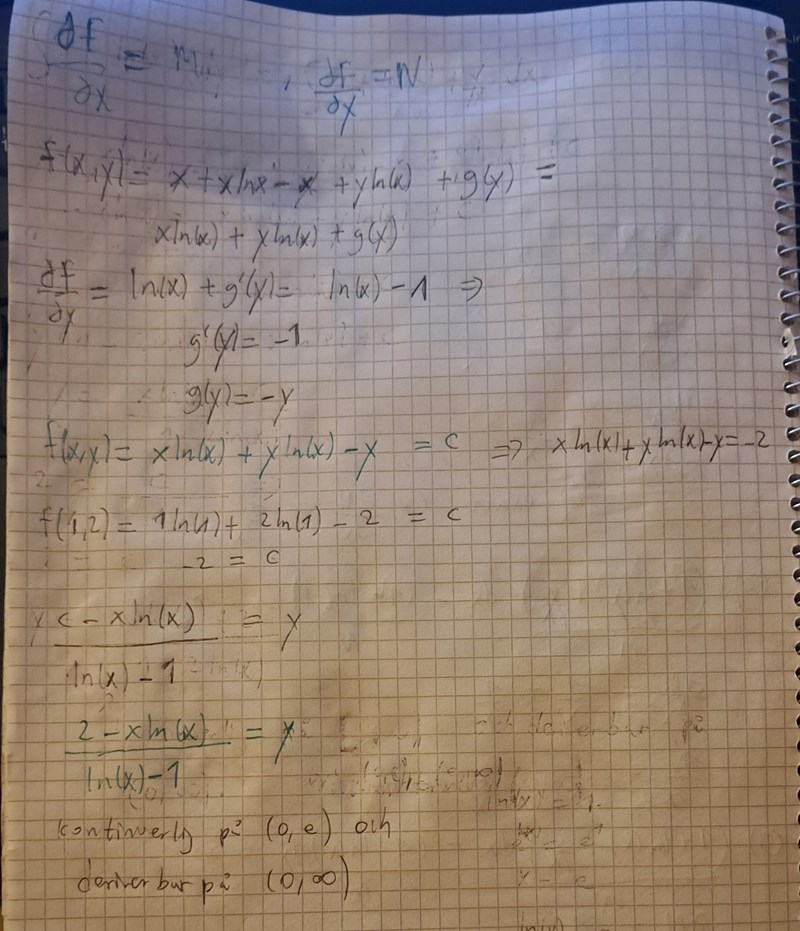 ∂f/∂x = M, ∂f/∂y = N
f(x,y) = x + x lnx - x + y ln(x) + g(y) =
x ln(x) + y ln(x) + g(y)
∂f/∂y = ln(x) + g'(y) = ln(x) - 1 ⇒
g'(y) = -1
g(y) = -y
f(x,y) = x ln(x) + y ln(x) - y = c ⇒ x ln(x) + y ln(x) - y = -2
f(1,2) = 1 ln(1) + 2 ln(1) - 2 = c
-2 = c
(c - x ln(x)) / (ln(x) - 1) = y
(2 - x ln(x)) / (ln(x) - 1) = y
kontinuerlig på (0,e) och
deriverbar på (0,∞)